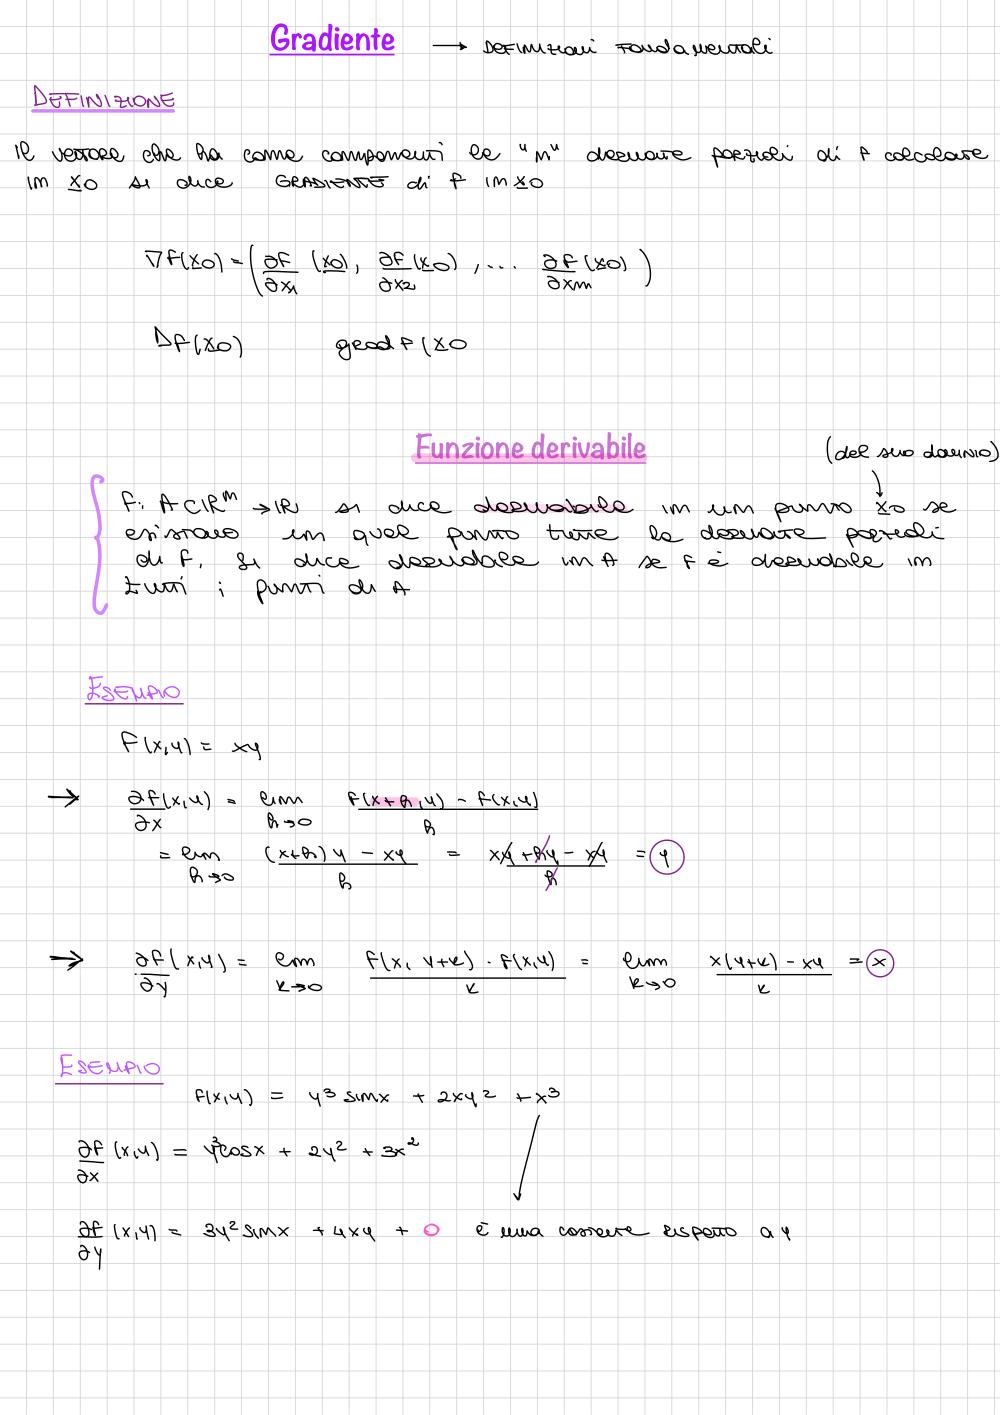 Gradiente → DEFINIZIONI FONDAMENTALI
DEFINIZIONE
Il vettore che ha come componenti le "n" derivate parziali di f calcolate
in x0 si dice GRADIENTE di f in x0
∇f(x0) = (∂f/∂x1 (x0), ∂f/∂x2 (x0), ... ∂f/∂xn (x0))
Df(x0) grad f(x0
Funzione derivabile
(del suo dominio)
f: A⊂ℝⁿ → ℝ si dice derivabile in un punto x0 se
esistono in quel punto tutte le derivate parziali
di f. Si dice derivabile in A se f è derivabile in
tutti i punti di A
ESEMPIO
f(x,y) = xy
→ ∂f/∂x (x,y) = lim h→0 f(x+h,y) - f(x,y) / h
= lim h→0 (x+h)y - xy / h = xy + hy - xy / h = y
→ ∂f/∂y (x,y) = lim k→0 f(x, y+k) - f(x,y) / k = lim k→0 x(y+k) - xy / k = x
ESEMPIO
f(x,y) = y³ sinx + 2xy² + x³
∂f/∂x (x,y) = y³cosx + 2y² + 3x²
∂f/∂y (x,y) = 3y² sinx + 4xy + 0 è una costante rispetto a y